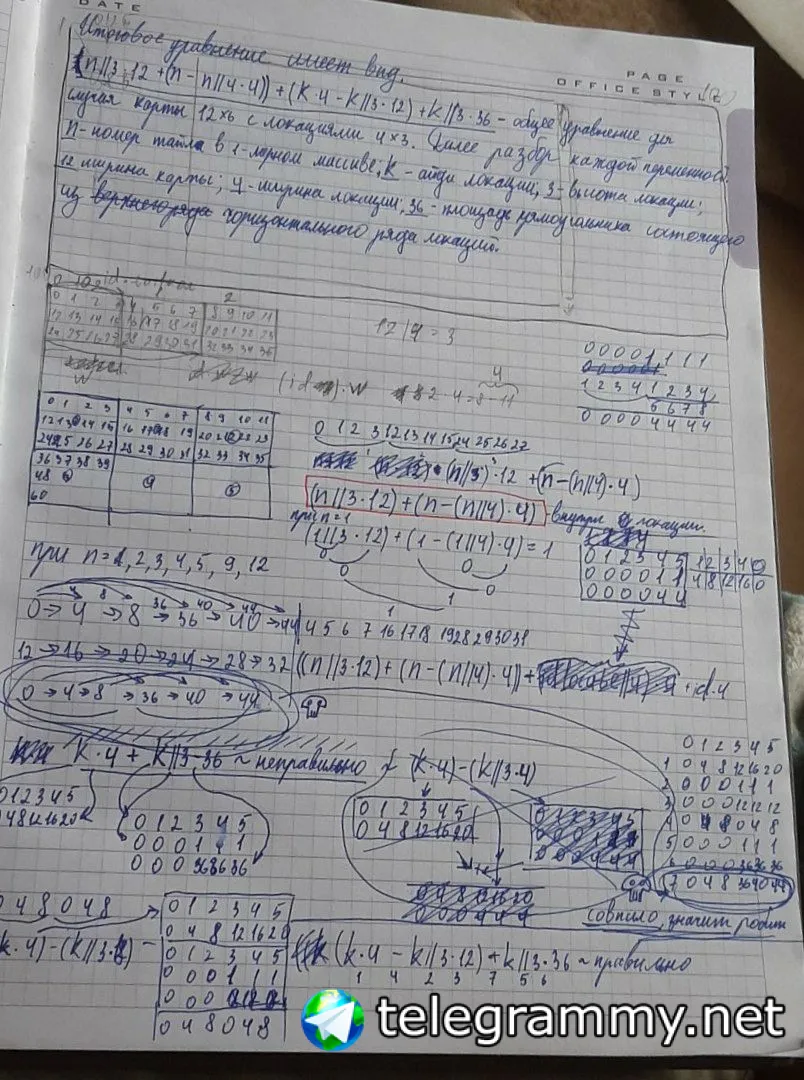 DATE
PAGE
OFFICE STYL
Итоговое уравнение имеет вид.
(n//3·12 + (n - n//4·4)) + (k·4 - k//3·12) + k//3·36 - общее уравнение для
случая карты 12x6 с локациями 4x3. Далее разбор каждой переменной:
n - номер тайла в 1-мерном массиве; k - айди локации; 3 - высота локации;
12 ширина карты; 4 - ширина локации; 36 - площадь прямоугольника состоящего
из горизонтального ряда локаций.
0 1 2 3 4 5 6 7 8 9 10 11
12 13 14 15 16 17 18 19 20 21 22 23
24 25 26 27 28 29 30 31 32 33 34 35
12/4 = 3
4
2·4=8-11
0 0 0 0 1 1 1 1
1 2 3 4 1 2 3 4
5 6 7 8
0 0 0 0 4 4 4 4
0 1 2 3 4 5 6 7 8 9 10 11
12 13 14 15 16 17 18 19 20 21 22 23
24 25 26 27 28 29 30 31 32 33 34 35
36 37 38 39
48
60
0 1 2 3 12 13 14 15 24 25 26 27
(n//3)·12 + (n-(n//4)·4)
(n//3·12)+(n-(n//4)·4) - внутри локации.
при n=1
(1//3·12)+(1-(1//4)·4)=1
0 0
0 0
1 1
0 1 2 3 4 5
0 0 0 0 1 1
0 0 0 0 4 4
1 2 3 4 0
4 8 12 16 0
при n=1,2,3,4,5,9,12
4 8 36 40 44
0→4→8→36→40→44
4 5 6 7 16 17 18 19 28 29 30 31
12→16→20→24→28→32
((n//3·12)+(n-(n//4)·4))+ +id·4
0→4→8→36→40→44
k·4 + k//3·36 ~ неправильно
(k·4)-(k//3·4)
0 1 2 3 4 5
0 4 8 12 16 20
0 1 2 3 4 5
0 0 0 1 1 1
0 0 0 36 36 36
0 1 2 3 4 5
0 4 8 12 16 20
0 1 2 3 4 5
1 0 4 8 12 16 20
2 0 0 0 1 1 1
3 0 0 0 12 12 12
4 0 4 8 0 4 8
5 0 0 0 1 1 1
6 0 0 0 36 36 36
7 0 4 8 36 40 44
совпало, значит робит
0 4 8 0 4 8
k·4)-(k//3·
0 1 2 3 4 5
0 4 8 12 16 20
0 1 2 3 4 5
0 0 0 1 1 1
0 0 0
0 4 8 0 4 8
(k·4 - k//3·12)+k//3·36 ~ правильно
1 4 2 3 7 5 6
telegrammy.net